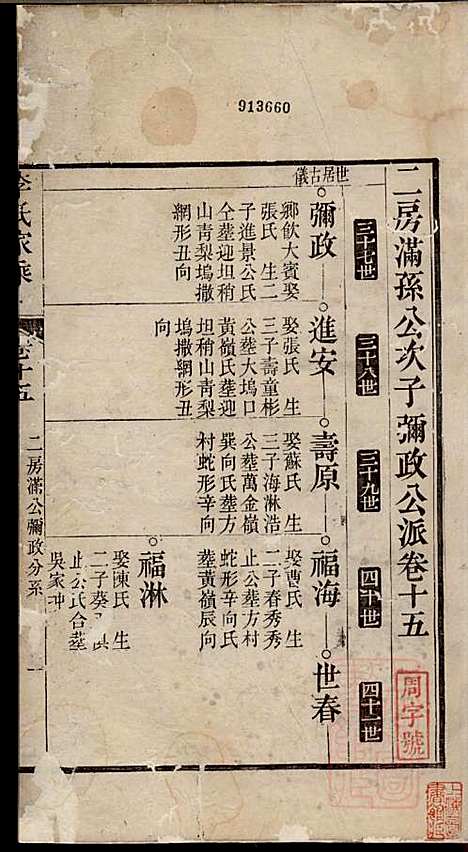 913660
二房滿孫公次子彌政公派卷十五
周字號
三十七世
三十八世
三十九世
四十世
四十一世
世居古儀
彌政
鄉飲大賓娶
張氏 生二
子進景公氏
仝塟迎坦稍
山青梨塢撒
網形丑向
進安
娶張氏 生
三子壽童彬
公塟大塢口
黃嶺氏塟迎
坦稍山青梨
塢撒網形丑
向
壽原
娶蘇氏 生
三子海淋浩
公塟萬金嶺
巽向氏塟方
村蛇形辛向
福海
娶曹氏 生
二子春秀秀
止公塟方村
蛇形辛向氏
塟黃嶺辰向
世春
福淋
娶陳氏 生
二子葵
止公氏合塟
吳家冲
李氏家乘
卷十五
二房滿公彌政分系
一